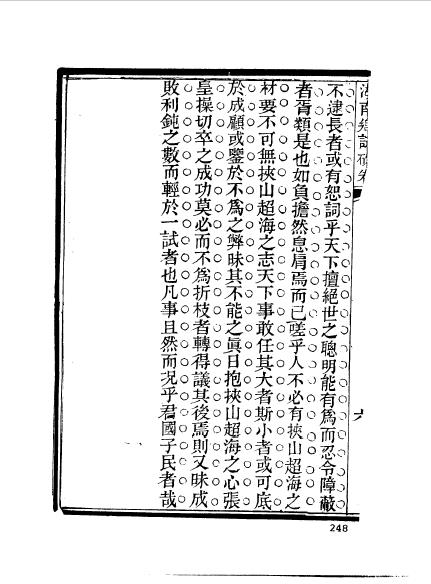 不逮長者或有恕詞乎天下擅絕世之聰明能有爲而忍令障蔽
者胥類是也如負擔然息肩焉而已嗟乎人不必有挾山超海之
材要不可無挾山超海之志天下事敢任其大者斯小者或可底
於成顧或鑒於不爲之弊昧其不能之眞日抱挾山超海之心張
皇操切卒之成功莫必而不爲折枝者轉得議其後焉則又昧成
敗利鈍之數而輕於一試者也凡事且然而况乎君國子民者哉
248